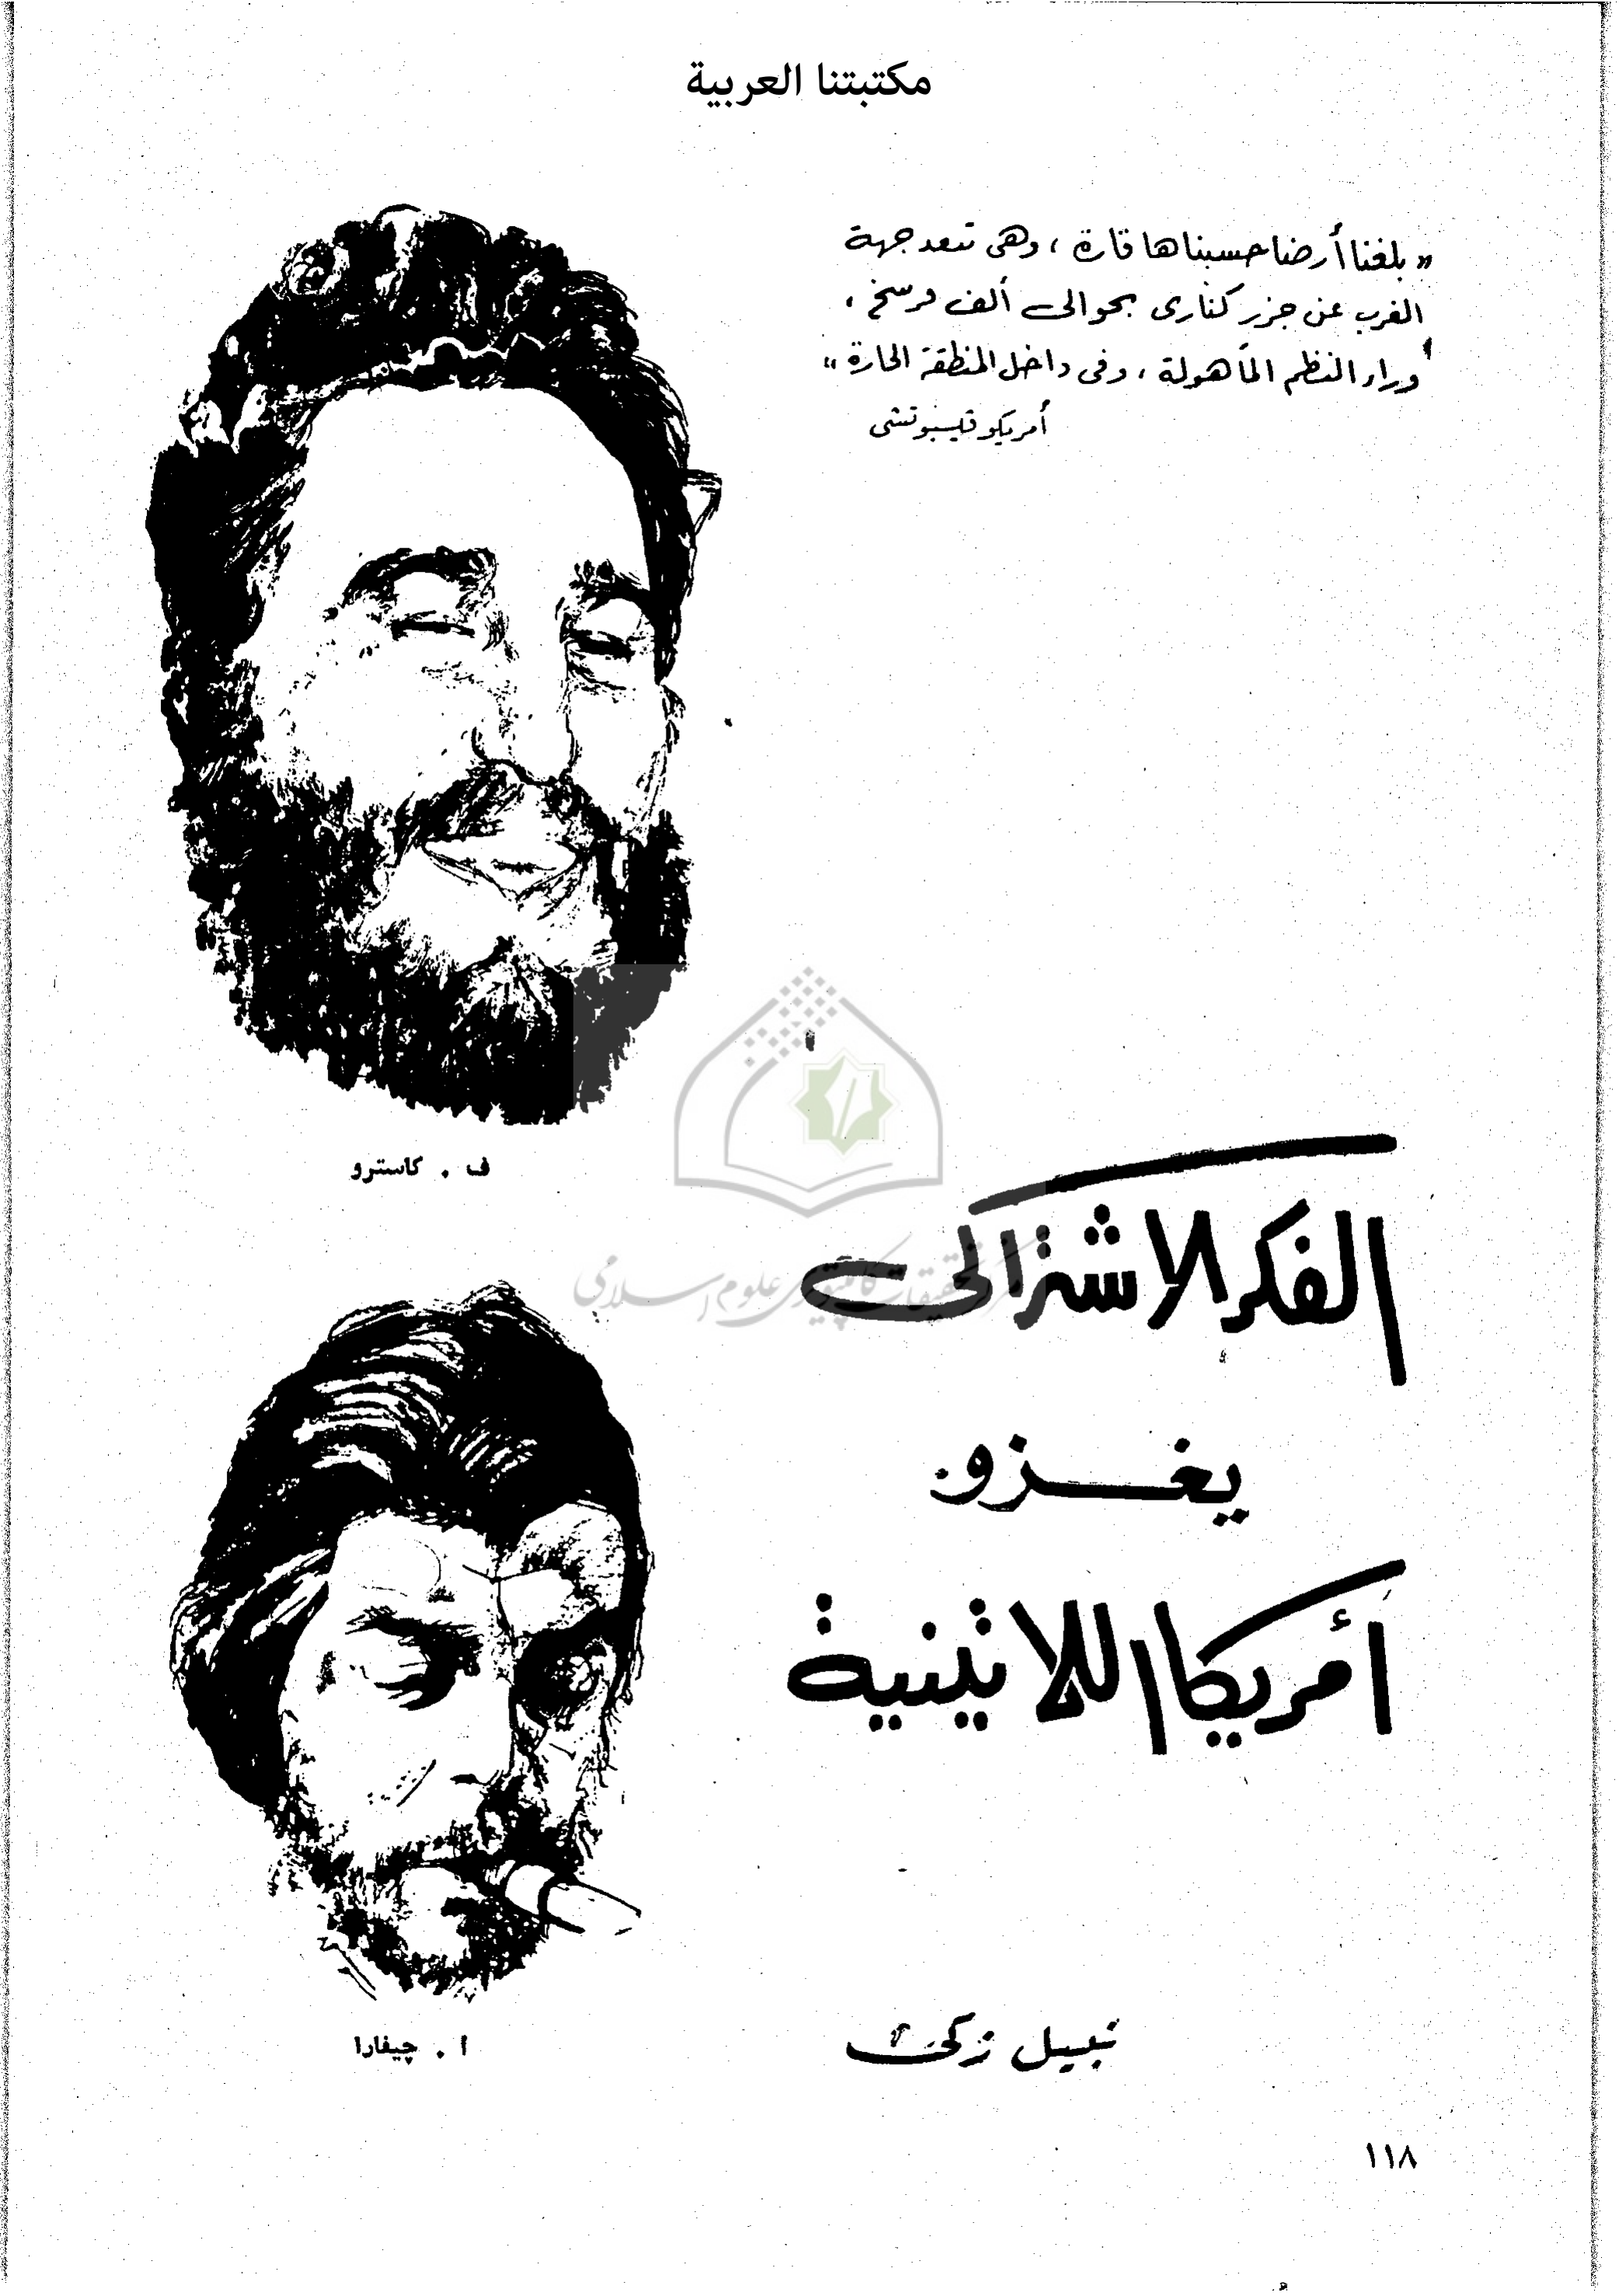 مكتبتنا العربية
« بلغنا أرضا حسبناها قارة ، وهى تبعد جهة
الغرب عن جزر كنارى بحوالى ألف فرسخ ،
وراء النظم المأهولة ، وفى داخل المنطقة الحارة »
أمريكو ڤيسبوتشى
ف . كاسترو
الفكر الاشتراكى
يغزو
أمريكا اللاتينية
مركز تحقيقات كامپيوترى علوم اسلامى
ا . چيفارا
نبيل زكى
١١٨